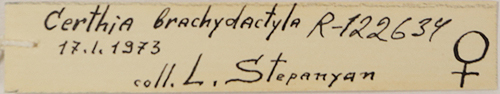 Certhia brachydactyla R-122634
17.1.1973
coll. L. Stepanyan ♀